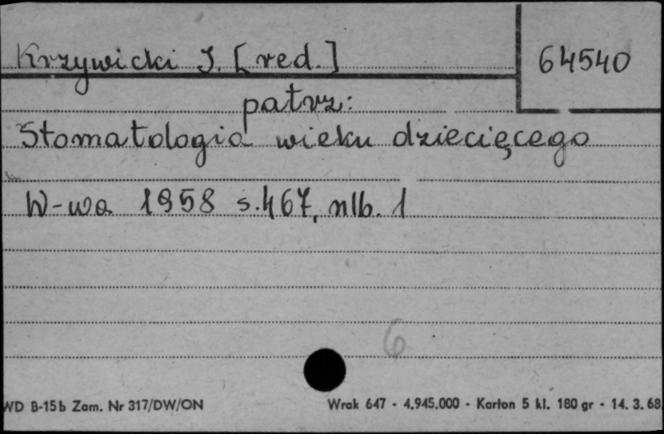 Krzywicki J. [red.]
64540
patrz:
Stomatologia wieku dziecięcego
W-wa 1958 s.467, nlb. 1
6
WD B-15b Zam. Nr 317/DW/ON
Wrak 647 - 4.945.000 - Karton 5 kl. 180 gr - 14. 3. 68